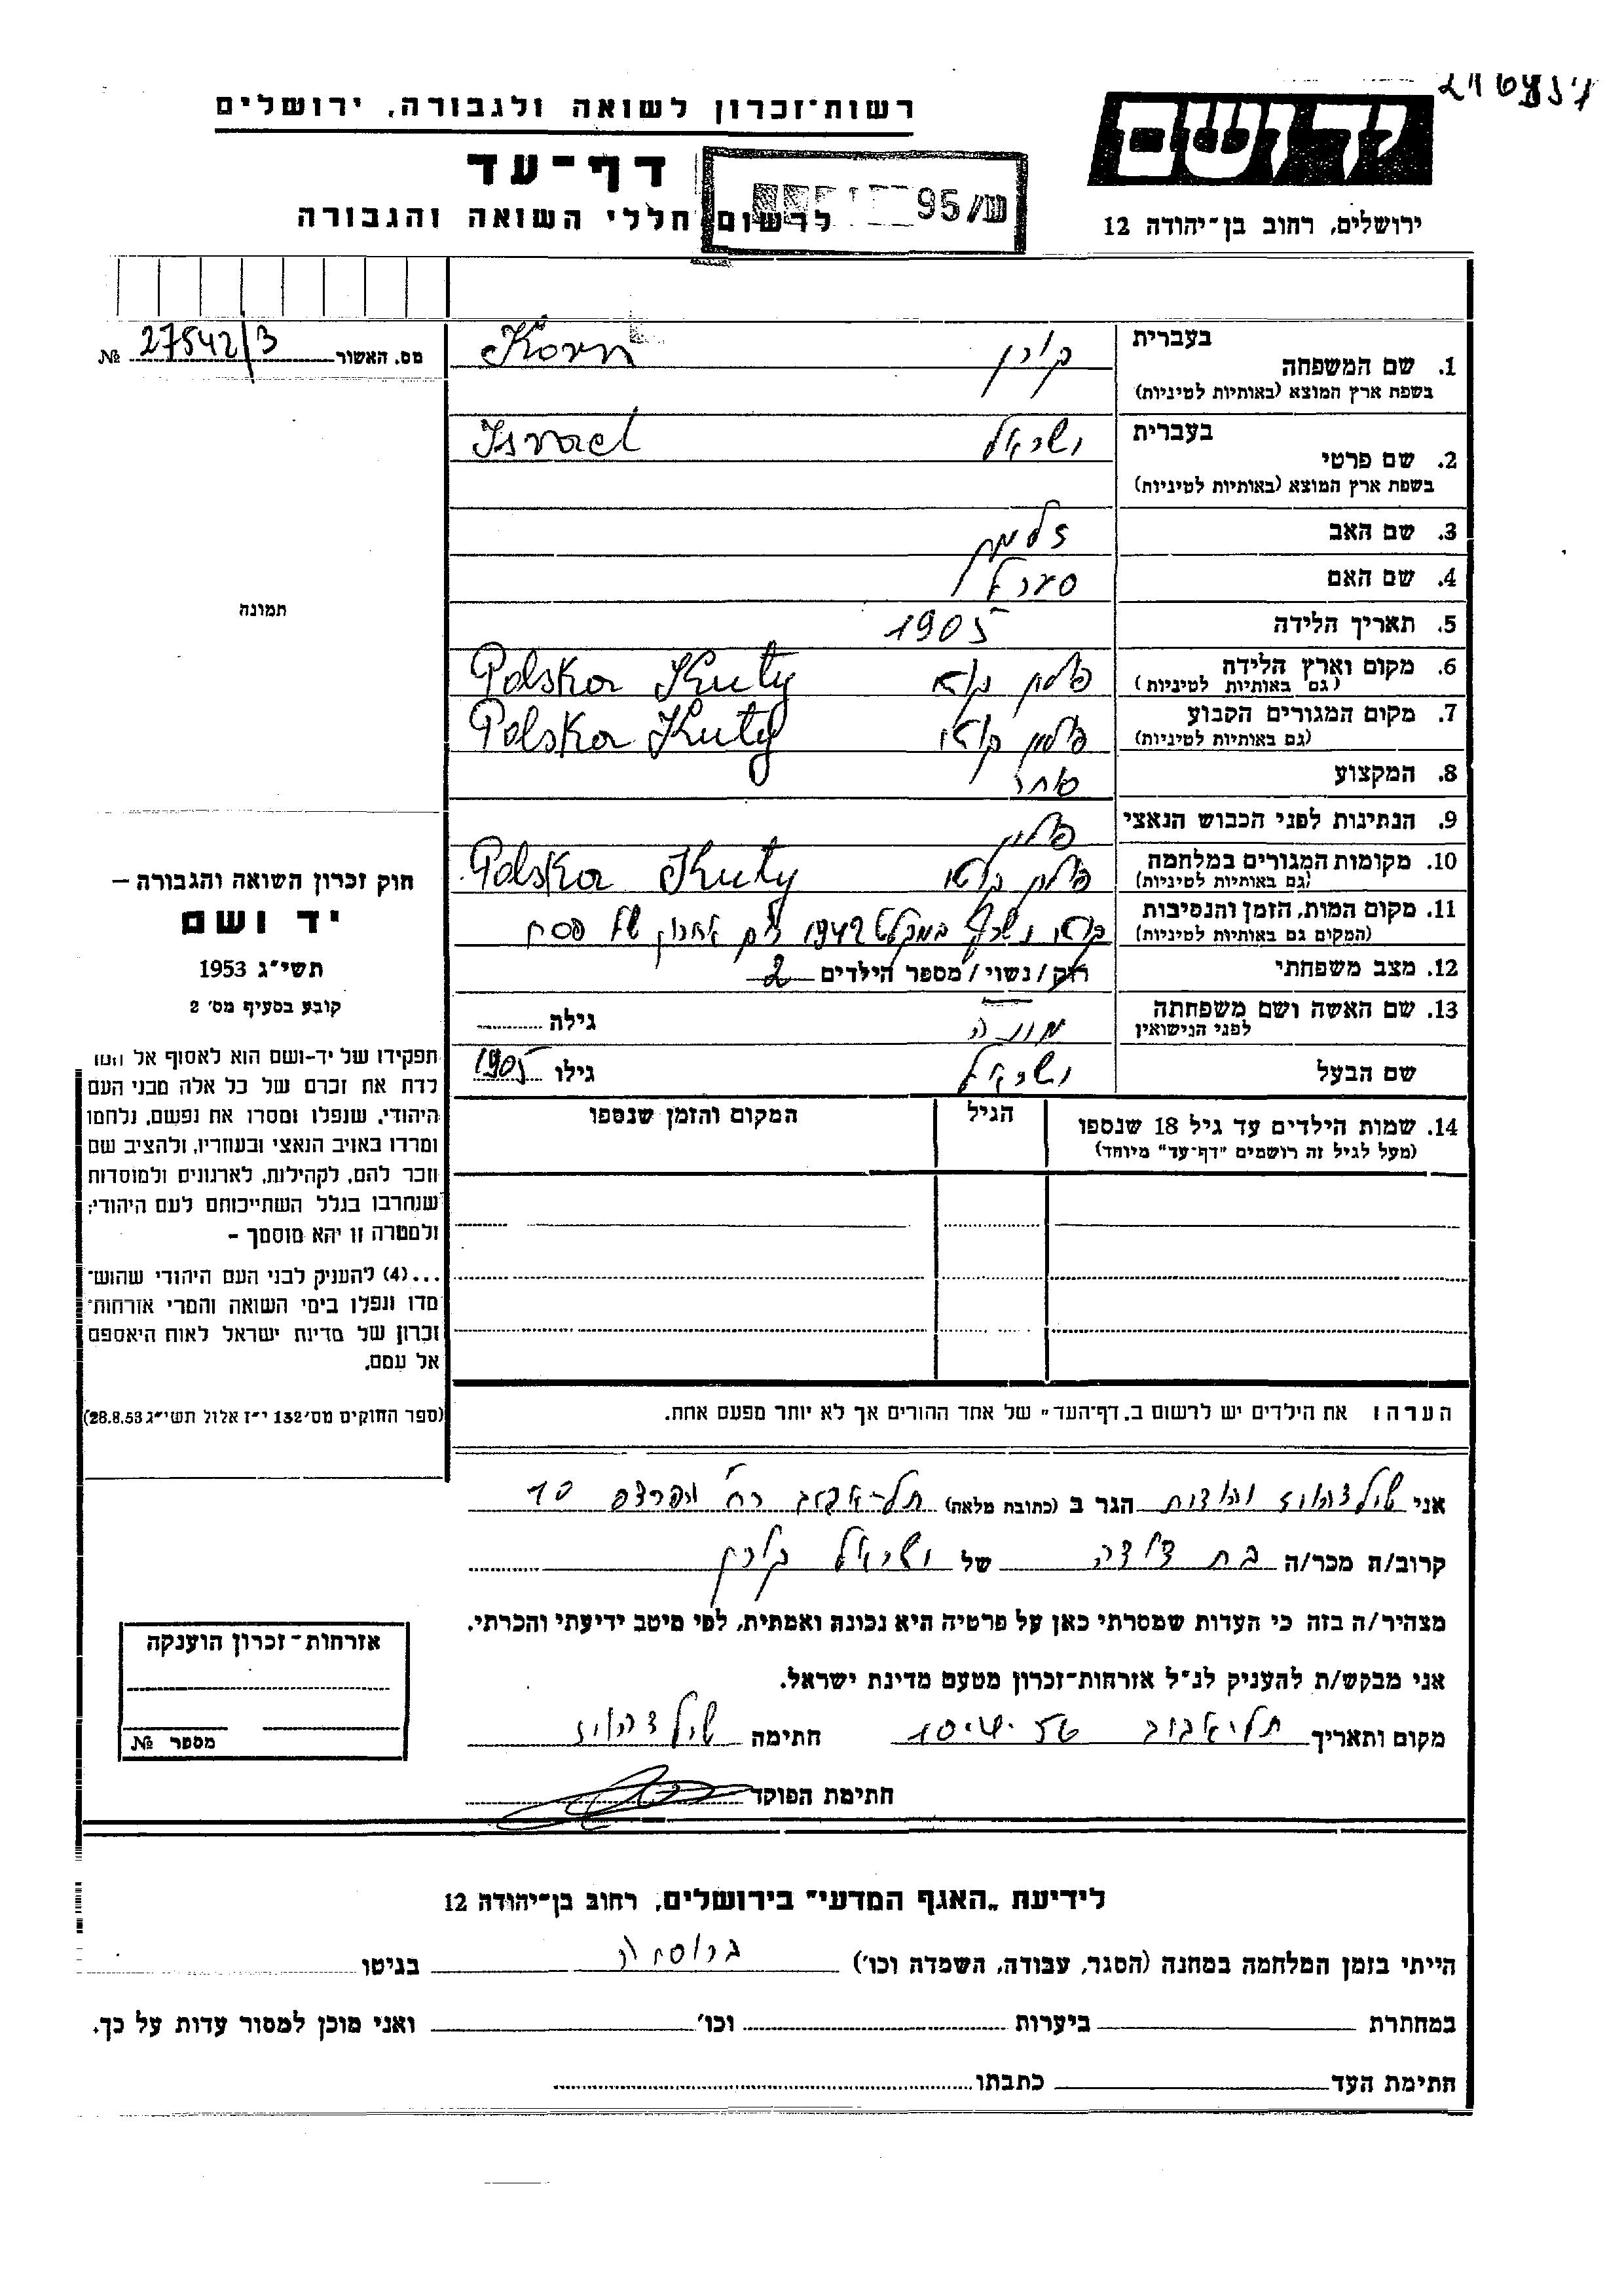 רשות־זכרון לשואה ולגבורה, ירושלים
דף־עד
לרשום חללי השואה והגבורה
95/שו
ידושם
ירושלים, רחוב בן־יהודה 12
מס. האשור 27542/3 №
בעברית
1. שם המשפחה
בשפת ארץ המוצא (באותיות לטיניות)
קורן Korn
בעברית
2. שם פרטי
בשפת ארץ המוצא (באותיות לטיניות)
ישראל Israel
3. שם האב זלמן
4. שם האם
5. תאריך הלידה 1905
6. מקום וארץ הלידה
(גם באותיות לטיניות)
פולין Polska Kuty
7. מקום המגורים הקבוע
(גם באותיות לטיניות)
פולין Polska Kuty
8. המקצוע סוחר
9. הנתינות לפני הכבוש הנאצי
10. מקומות המגורים במלחמה
(גם באותיות לטיניות)
פולין Polska Kuty
11. מקום המות, הזמן והנסיבות
(המקום גם באותיות לטיניות)
נשרף במקלט 1942 יום אחרון של פסח
12. מצב משפחתי רוק / נשוי / מספר הילדים 2
13. שם האשה ושם משפחתה
לפני הנישואין
גילה
שם הבעל ישראל גילו 1905
14. שמות הילדים עד גיל 18 שנספו
(מעל לגיל זה רושמים "דף־עד" מיוחד)
הגיל
המקום והזמן שנספו
הערה: את הילדים יש לרשום ב„דף־העד" של אחד ההורים אך לא יותר מפעם אחת.
תמונה
חוק זכרון השואה והגבורה –
יד ושם
תשי״ג 1953
קובע בסעיף מס׳ 2
תפקידו של יד-ושם הוא לאסוף אל המו
לדת את זכרם של כל אלה מבני העם
היהודי, שנפלו ומסרו את נפשם, נלחמו
ומרדו באויב הנאצי ובעוזריו, ולהציב שם
וזכר להם, לקהילות, לארגונים ולמוסדות
שנחרבו בגלל השתייכותם לעם היהודי;
ולמטרה זו יהא מוסמך –
...(4) להעניק לבני העם היהודי שהוש־
מדו ונפלו בימי השואה והמרי אזרחות־
זכרון של מדינת ישראל לאות היאספם
אל עמם.
(ספר החוקים מס׳ 132 י״ז אלול תשי״ג 28.8.53)
אני יהודית הגר ב (כתובת מלאה) תל-אביב רח׳ 10
קרוב/ה מכר/ה בת דודה של ישראל קורן
מצהיר/ה בזה כי העדות שמסרתי כאן על פרטיה היא נכונה ואמתית, לפי מיטב ידיעתי והכרתי.
אני מבקש/ת להעניק לנ״ל אזרחות־זכרון מטעם מדינת ישראל.
מקום ותאריך תל-אביב חתימה
חתימת הפוקד
אזרחות־זכרון הוענקה
מספר №
לידיעת „האגף המדעי" בירושלים, רחוב בן־יהודה 12
הייתי בזמן המלחמה במחנה (הסגר, עבודה, השמדה וכו׳) ברוסיה בגיטו
במחתרת ביערות וכו׳ ואני מוכן למסור עדות על כך.
חתימת העד כתבתו